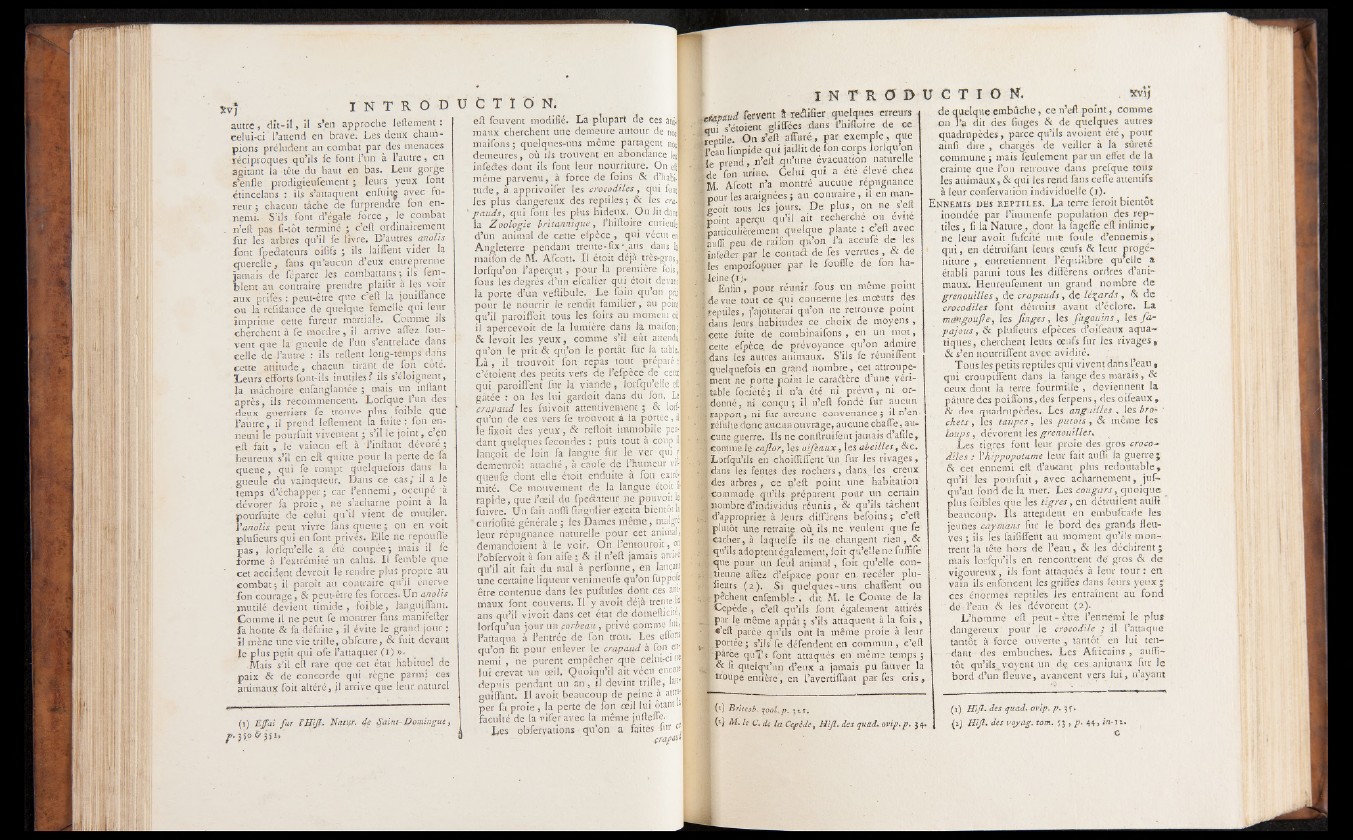 xvj
INTRODUCTION.
autre, dit-il, il s'en approche lestement :
celui-ci l'attend en brave. Les deux cham-
pions préludent au combat par des menaces
réciproques qu'ils se font l'un à l'autre, en
agitant la tête du haut en bas. Leur gorge
s'enfle prodigieusement ; leurs yeux sont
étincelans : ils s'attaquent ensuite avec fu-
reur ; chacun tâche de surprendre son en-
nemi. S'ils sont d'égale force, le combat
n'est pas si-tôt terminé ; c'est ordinairement
sur les arbres qu'il se livre. D'autres anolis
sont spectateurs oisifs ; ils laissent vider la
querelle, sans qu'aucun d'eux entreprenne
jamais de séparer les combattans ; ils sem-
blent au contraire prendre plaisir à les voir
aux prises : peut-être que c'est la jouissance
ou la résistance de quelque femelle qui leur
imprime cette fureur martiale. Comme ils
cherchent à se mordre, il arrive assez sou-
vent que la gueule de l'un s'entrelace dans
celle de l'autre : ils restent long-temps dans
cette attitude, chacun tirant de son côté.
Leurs efforts sont-ils inutiles ? ils s'éloignent,
la mâchoire ensanglantée ; mais un instant
après, ils recommencent. Lorsque l'un des
deux guerriers se trouve plus foible que
l'autre, il prend lestement la fuite : son en-
nemi le poursuit vivement ; s'il le joint, c'en
est fait, le vaincu est à l'instant dévoré ;
heureux s'il en est quitte pour la perte de sa
queue, qui se rompt quelquefois dans la
gueule du vainqueur. Dans ce cas, il a le
temps d'échapper ; car l'ennemi, occupé à
dévorer sa proie, ne s'acharne point à la
poursuite de celui qu'il vient de mutiler.
L'anolis peut vivre sans queue ; on en voit
plusieurs qui en sont privés. Elle ne repousse
pas, lorsqu'elle a été coupée ; mais il se
forme à l'extrémité un calus. Il semble que
cet accident devroit le rendre plus propre au
combat ; il paroît au contraire qu'il énerve
son courage, & peut-être ses forces. Un anolis
mutilé devient timide, foible, languissant.
Comme il ne peut se montrer sans manifester
sa honte & sa défaite, il évite le grand jour ;
il mène une vie triste, obscure, & fuit devant
le plus petit qui ose l'attaquer (1) ».
Mais s'il est rare que cet état habituel de
paix & de concorde qui règne parmi ces
animaux soit altéré, il arrive que leur naturel
(1) Essai sur l'Hist. Natur. de Saint-Domingue,
p. 350 & 351.
est souvent modifié. La plupart de ces ani-
maux cherchent une demeure autour de nos
maisons ; quelques-uns même partagent nos
demeures, où ils trouvent en abondance les
insectes dont ils font leur nourriture. On est
même parvenu, à force de soins & d'habi-
tude, à apprivoiser les crocodiles, qui sont
les plus dangereux des reptiles ; & les cra-
pauds, qui sont les plus hideux. On lit dans
la Zoologie britannique, l'histoire curieuse
d'un animal de cette espèce, qui vécut en
Angleterre pendant trente-six ans dans la
maison de M. Ascott. Il étoit déjà très-gros,
lorsqu'on l'aperçut, pour la première fois,
sous les degrés d'un escalier qui étoit devant
la porte d'un vestibule. Le soin qu'on prit
pour le nourrir le rendit familier, au point
qu'il paroissoit tous les soirs au moment où
il apercevoit de la lumière dans la maison,
& levoit les yeux, comme s'il eût attendu
qu'on le prît & qu'on le portât sur la table.
Là, il trouvoit son repas tout préparé :
c'étoient des petits vers de l'espèce de ceux
qui paroissent sur la viande, lorsqu'elle est
gâtée : on les lui gardoit dans du son. Le
crapaud les suivoit attentivement ; & lors-
qu'un de ces vers se trouvoit à la portée, il
le fixoit des yeux, & restoit immobile pen-
dant quelques secondes : puis tout à coup il
lançoit de loin sa langue sur le ver qui y
demeuroit attaché, à cause de l'humeur vis-
queuse dont elle étoit enduite à son extré-
mité. Ce mouvement de la langue étoit si
rapide, que l'œil du spectateur ne pouvoit le
suivre. Un fait aussi singulier excita bientôt la
curiosité générale ; les Dames même, malgré
leur répugnance naturelle pour cet animal,
demandoient à le voir. On l'entouroit, on
l'observoit à son aise ; & il n'est jamais arrivé
qu'il ait fait du mal à personne, en lançant
une certaine liqueur venimeuse qu'on suppose
être contenue dans les pustules dont ces ani-
maux sont couverts. Il y avoit déjà trente-six
ans qu'il vivoit dans cet état de domesticité,
lorsqu'un jour un corbeau, privé comme lui,
l'attaqua à l'entrée de son trou. Les efforts
qu'on fit pour enlever le crapaud à son en-
nemi, ne purent empêcher que celui-ci ne
lui crevât un œil. Quoiqu'il ait vécu encore
depuis pendant un an, il devint triste, lan-
guissant. Il avoit beaucoup de peine à attra-
per sa proie, la perte de son œil lui ôtant la
faculté de la viser avec la même justesse.
Les observations qu'on a faites sur ce
crapaud
INTRODUCTION.
xvij
crapaud servent à rectifier quelques erreurs
qui s'étoient glissées dans l'histoire de ce
reptile. On s'est assuré, par exemple, que
l'eau limpide qui jaillit de son corps lorsqu'on
le prend, n'est qu'une évacuation naturelle
de son urine. Celui qui a été élevé chez
M. Ascott n'a montré aucune répugnance
pour les araignées ; au contraire, il en man-
geoit tous les jours. De plus, on ne s'est
point aperçu qu'il ait recherché ou évité
particulièrement quelque plante : c'est avec
aussi peu de raison qu'on l'a accusé de les
infecter par le contact de ses verrues, & de
les empoisonner par le souffle de son ha-
leine (1).
Enfin, pour réunir sous un même point
de vue tout ce qui concerne les mœurs des
reptiles, j'ajouterai qu'on ne retrouve point
dans leurs habitudes ce choix de moyens,
cette suite de combinaisons, en un mot,
cette espèce de prévoyance qu'on admire
dans les autres animaux. S'ils se réunissent
quelquefois en grand nombre, cet attroupe-
ment ne porte point le caractère d'une véri-
table société ; il n'a été ni prévu, ni or-
donné, ni conçu ; il n'est fondé sur aucun
rapport, ni sur aucune convenance ; il n'en
résulte donc aucun ouvrage, aucune chasse, au-
cune guerre. Ils ne construisent jamais d'asile,
comme le castor, les oiseaux, les abeilles, &c.
Lorsqu'ils en choisissent un sur les rivages,
dans les fentes des rochers, dans les creux
des arbres, ce n'est point une habitation
commode qu'ils préparent pour un certain
nombre d'individus réunis, & qu'ils tâchent
d'approprier à leurs différens besoins ; c'est
plutôt une retraite où ils ne veulent que se
cacher, à laquelle ils ne changent rien, &
qu'ils adoptent également, soit qu'elle ne suffise
que pour un seul animal, soit qu'elle con-
tienne assez d'espace pour en recéler plu-
sieurs (2). Si quelques-uns chassent ou
pêchent ensemble, dit M. le Comte de la
Cepède, c'est qu'ils sont également attirés
par le même appât ; s'ils attaquent à la fois,
c'est parce qu'ils ont la même proie à leur
portée ; s'ils se défendent en commun, c'est
parce qu'ils sont attaqués en même temps ;
& si quelqu'un d'eux a jamais pu sauver la
troupe entière, en l'avertissant par ses cris,
(1) Britesh. zool. p. 321.
(2) M. le C. de la Cepède, Hist. des quad. ovip. p. 34.
de quelque embûche, ce n'est point, comme
on l'a dit des singes & de quelques autres
quadrupèdes, parce qu'ils avoient été, pour
ainsi dire, chargés de veiller à la sûreté
commune ; mais seulement par un effet de la
crainte que l'on retrouve dans presque tous
les animaux, & qui les rend sans cesse attentifs
à leur conservation individuelle (1).
Ennemis des reptiles. La terre seroit bientôt
inondée par l'immense population des rep-
tiles, si la Nature, dont la sagesse est infinie,
ne leur avoit suscité une foule d'ennemis,
qui, en détruisant leurs œufs & leur progé-
niture, entretiennent l'équilibre qu'elle a
établi parmi tous les différens ordres d'ani-
maux. Heureusement un grand nombre de
grenouilles, de crapauds, de lézards, & de
crocodiles sont détruits avant d'éclore. La
mangouste, les singes, les sagouins, les sa-
pajous, & plusieurs espèces d'oiseaux aqua-
tiques, cherchent leurs œufs sur les rivages,
& s'en nourrissent avec avidité.
Tous les petits reptiles qui vivent dans l'eau,
qui croupissent dans la fange des marais, &
ceux dont la terre fourmille, deviennent la
pâture des poissons, des serpens, des oiseaux,
& des quadrupèdes. Les anguilles, les bro-
chets, les taupes, les putois, & même les
loups, dévorent les grenouilles.
Les tigres font leur proie des gros croco-
diles : l'hippopotame leur fait aussi la guerre ;
& cet ennemi est d'autant plus redoutable,
qu'il les poursuit, avec acharnement, jus-
qu'au fond de la mer. Les cougars, quoique
plus foibles que les tigres, en détruisent aussi
beaucoup. Ils attendent en embuscade les
jeunes caymans sur le bord des grands fleu-
ves ; ils les saisissent au moment qu'ils mon-
trent la tête hors de l'eau, & les déchirent ;
mais lorsqu'ils en rencontrent de gros & de
vigoureux, ils sont attaqués à leur tour : en
vain ils enfoncent les griffes dans leurs yeux ;
ces énormes reptiles les entraînent au fond
de l'eau & les dévorent (2).
L'homme est peut-être l'ennemi le plus
dangereux pour le crocodile ; il l'attaque
tantôt à force ouverte, tantôt en lui ten-
dant des embuches. Les Africains, aussi-
tôt qu'ils voyent un de ces animaux sur le
bord d'un fleuve, avancent vers lui, n'ayant
(1) Hist. des quad. ovip. p. 35.
(2) Hist. des voyag. tom. 53, p. 44, in-12.
G